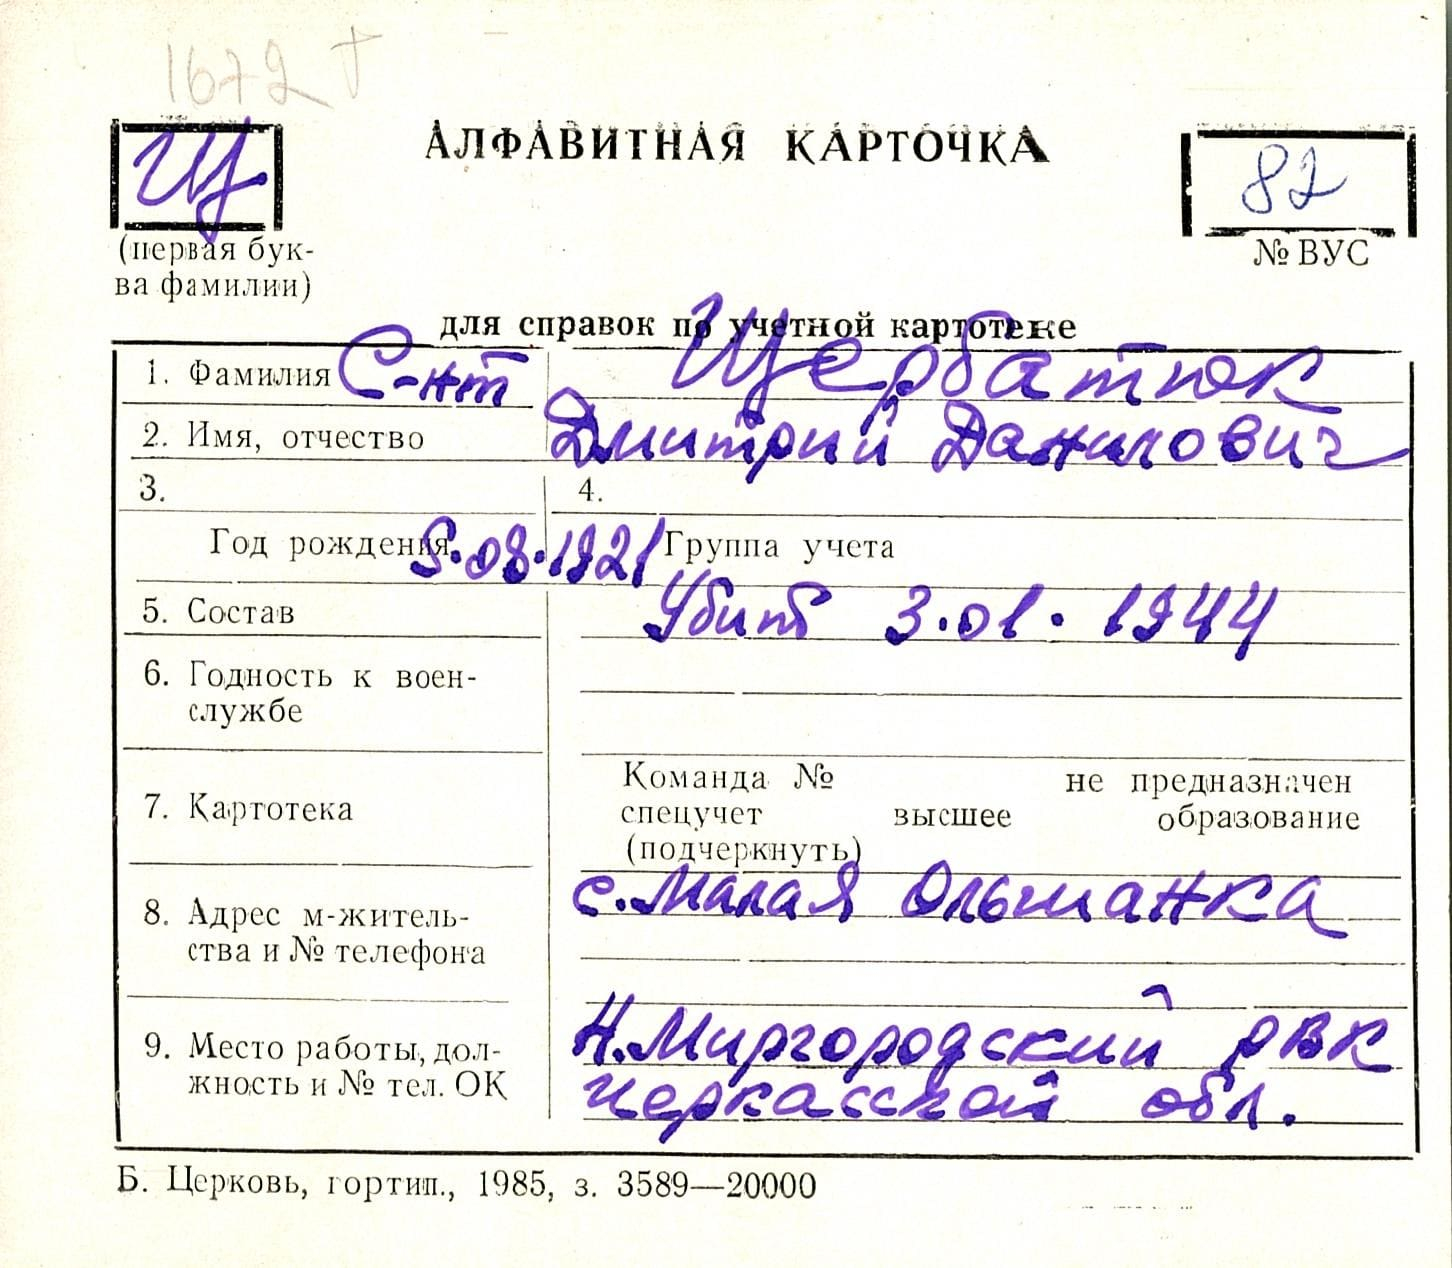 1672 †
Щ
АЛФАВИТНАЯ КАРТОЧКА
82
(первая бук-
ва фамилии)
№ ВУС
для справок по учетной картотеке
1. Фамилия С-нт Щербатюк
2. Имя, отчество Дмитрий Данилович
3. 4.
Год рождения 5.08.1921 Группа учета
5. Состав Убит 3.01.1944
6. Годность к воен-
службе
Команда № не предназначен
7. Картотека спецучет высшее образование
(подчеркнуть)
с. Малая Ольшанка
8. Адрес м-житель-
ства и № телефона
Н. Миргородский РВК
9. Место работы, дол-
жность и № тел. ОК
Черкасской обл.
Б. Церковь, гортип., 1985, з. 3589—20000